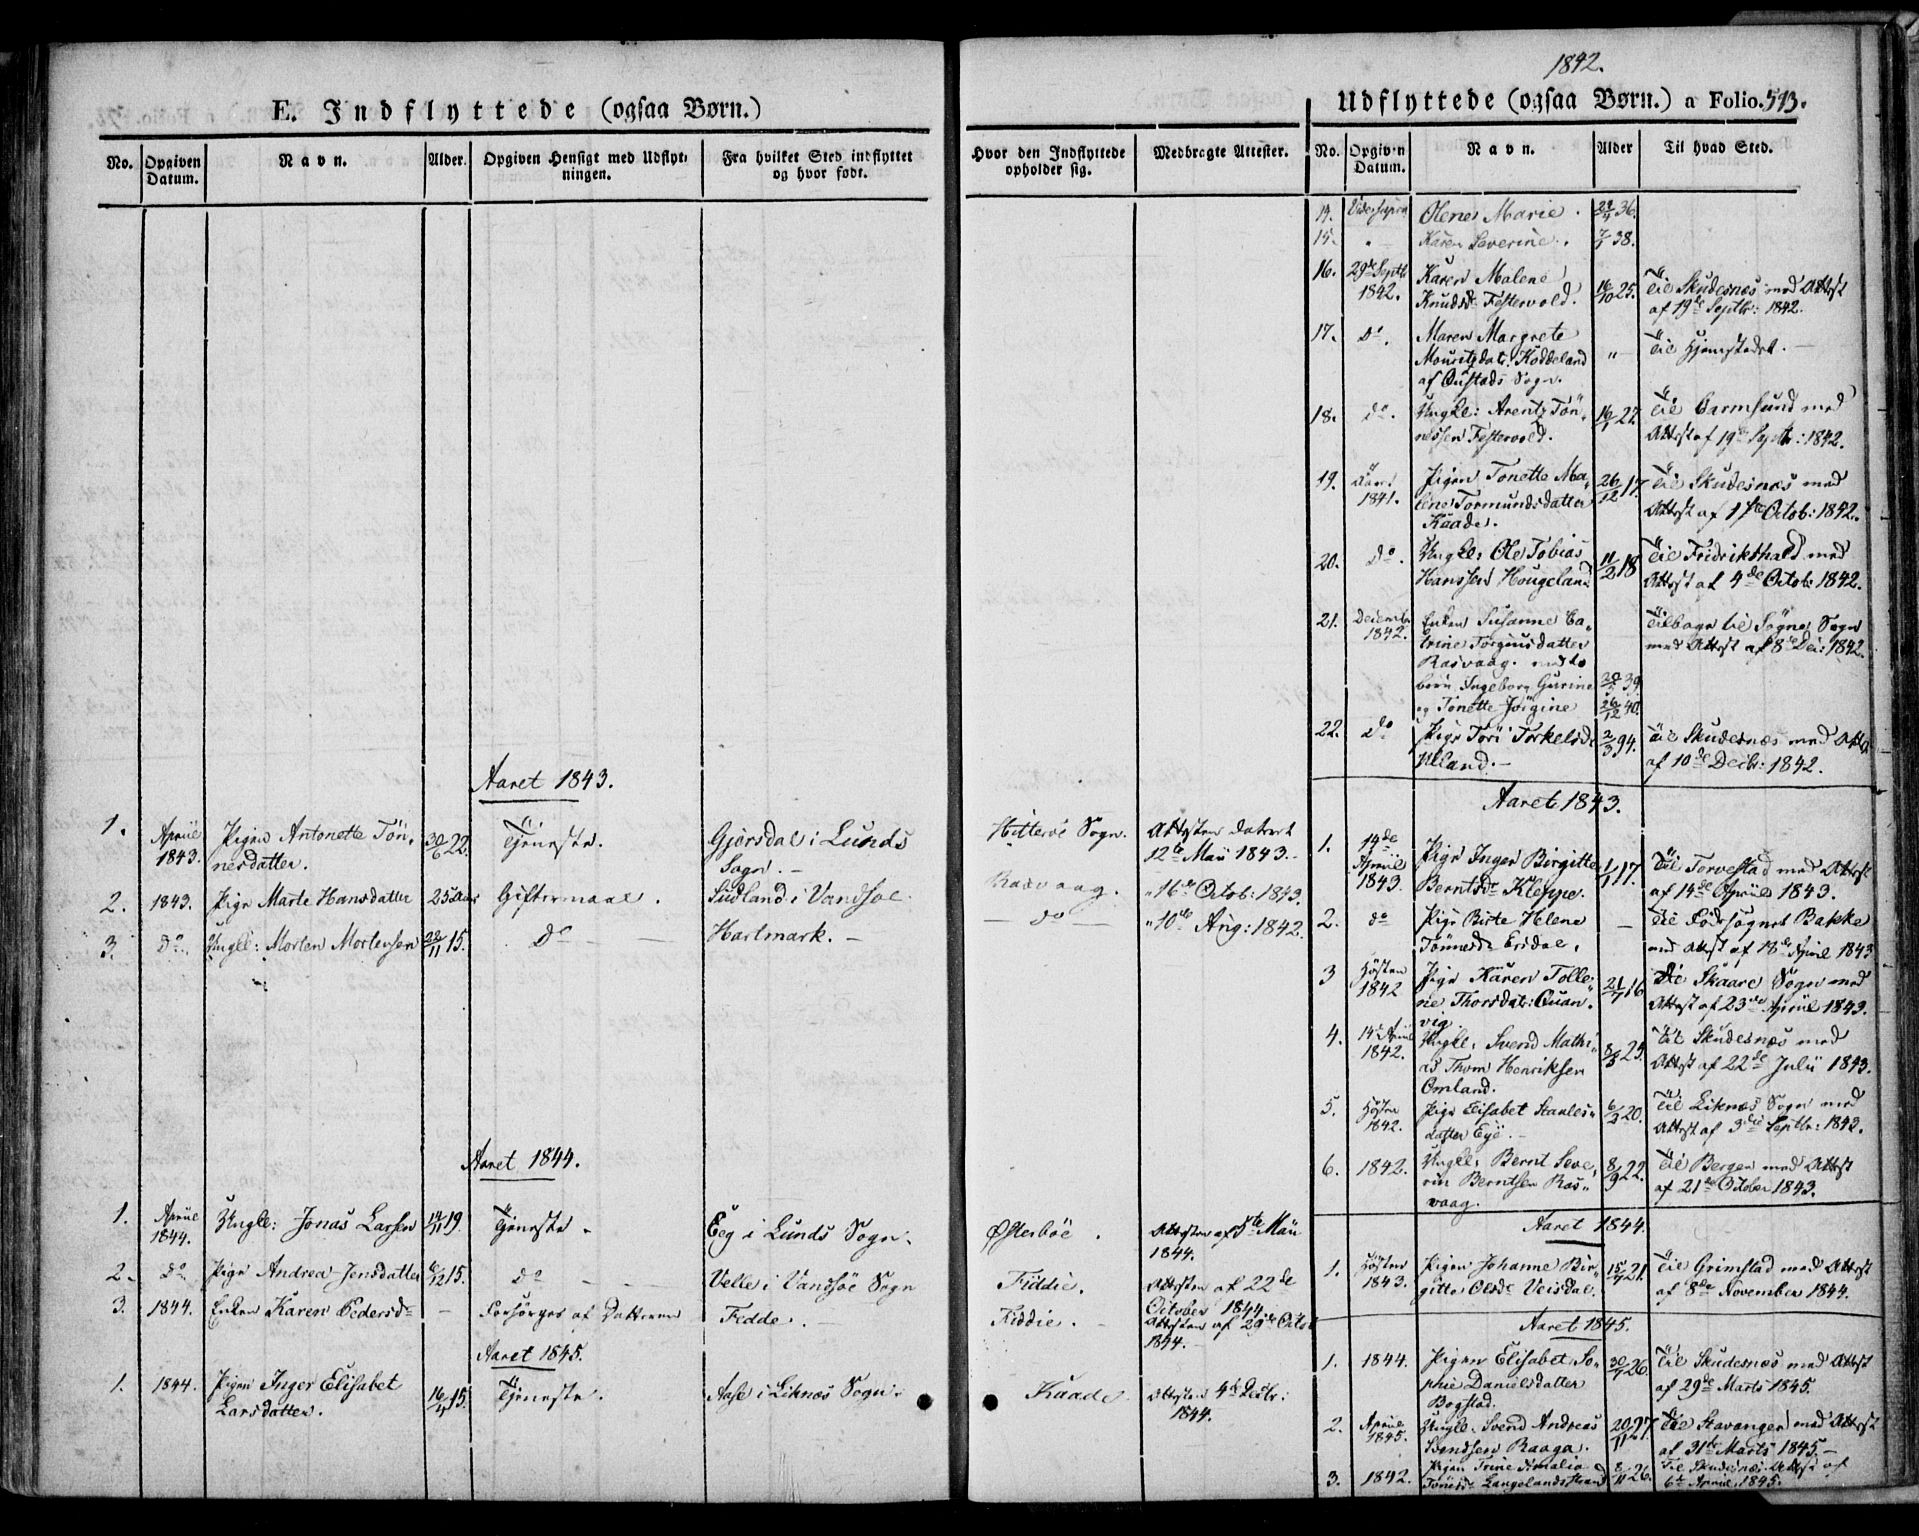 1842.
E. Indflyttede (ogsaa Børn.)
Udflyttede (ogsaa Børn.) a Folio. 593.
No. Opgiven Datum. Navn. Alder. Opgiven Hensigt med Udflytningen. Fra hvilket Sted indflyttet og hvor født. Hvor den Indflyttede opholder sig. Medbragte Attester.
Aaret 1843.
1. April 1843. Pigen Antonette Tønnesdatter. 30/6 22. Tjeneste. Gjersdal i Lunds Sogn. Hitterø Sogn. Attesten dateret 12te Mai 1843.
2. 1843. Pige Marte Hansdatter 25 Aar Giftermaal. Sudland i Vandsøe Rasvaag. " 16de Octob: 1843.
3. Do Ungk: Morten Mortensen 22/11 15. Do Hartmark. Do " 10de Aug: 1842.
Aaret 1844.
1. April 1844. Ungk: Jonas Larsen 14/11 19. Tjeneste. Eeg i Lunds Sogn. Østerbøe. Attesten af 5te Mai 1844.
2. Do Pige Andrea Jensdatter 6/12 15. Do Velle i Vandsøe Sogn Fiddie. Attesten af 22de October 1844.
3. 1844. Enken Karen Pedersd. Forsørges af Datteren Fedde. Fiddie. Attesten af 29de Octob 1844.
Aaret 1845.
1. 1844. Pigen Inger Elisabet Larsdatter. 16/4 15. Tjeneste. Aase i Liknæs Sogn. Kaade. Attesten 4de Decbr: 1844.
No. Opgiven Datum. Navn. Alder Til hvad Sted.
14. Olene Marie. 36.
15. Karen Severine. 38.
16. 29de Septbr 1842. Karen Malene Knudsd. Festervold. 16/10 25. Til Skudesnæs med Attest af 19de Septbr: 1842.
17. Do. Maren Margrete Mouritzdat: Koddeland af Oustads Sogn. " Til Hjemstedet.
18. do. Ungk: Arentz Tønnessen Festervold. 27. Til Carmsund med Attest af 19de Septbr: 1842.
19. 1841. Pigen Tonette Malene Tormundsdatter Kaade. 26/12 17. Til Skudesnæs med Attest af 1ste Octob: 1842.
20. do. Ungk: Ole Tobias Hanssen Hougeland 11/2 18 Til Fridrikshald med Attest af 4de Octob: 1842.
21. Decembr 1842. Enken Susanne Catrine Torgiusdatter Rasvaag. med to børn Ingeborg Gurine 39 og Tonette Jørgine 26/12 40. Tilbage til Søgne Sogn med Attest af 8de Dec: 1842.
22. do Pige Tori Torkelsd. Ulland. 2/3 94. Til Skudesnæs med Attest af 10de Decbr: 1842.
Aaret 1843.
1. 14de April 1843. Pige Inger Birgitte Berntsd. Kleppe. 1/1 17. Til Torvestad med Attest af 14de April 1843.
2. do Pige Birte Helene Tønnesd. Eridal. Til Fødsognet Bakke med Attest af 18de April 1843
3 Høsten 1842 Pige Karen Tolline Thorsdat: Quanvig 21/7 16 Til Skaare Sogn med Attest af 23de April 1843.
4. 14de April 1842. Ungk: Svend Mathias Thom Henriksen Omland. 8/3 25. Til Skudesnæs med Attest af 22de Julii 1843.
5. Høsten 1842. Pige Elisabet Staalesdatter Eye. 6/2 20. Til Liknæs Sogn med Attest af 3die Septbr: 1843.
6. 1842. Ungk: Bernt Severin Berntsen Rasvaag. 8/9 22. Til Bergen med Attest af 21de October 1843.
Aaret 1844.
1. Høsten 1843. Pigen Johanne Birgitte Olsd. Veisdal. 15/7 21. Til Grimstad med Attest af 8de November 1844.
Aaret 1845.
1. 1844. Pigen Elisabet Sophie Danielsdatter Bogstad. 30/7 26. Til Skudesnæs med Attest af 29de Marts 1845.
2. April 1845. Ungk: Svend Andreas Svendsen Raaga. 20/11 27 Til Stavanger med Attest af 31te Marts 1845.
3. 1842. Pigen Trine Amalia Tønesd. Langelandsstrand 8/11 26. Til Skudesnæs. Attest af 6te April 1845.